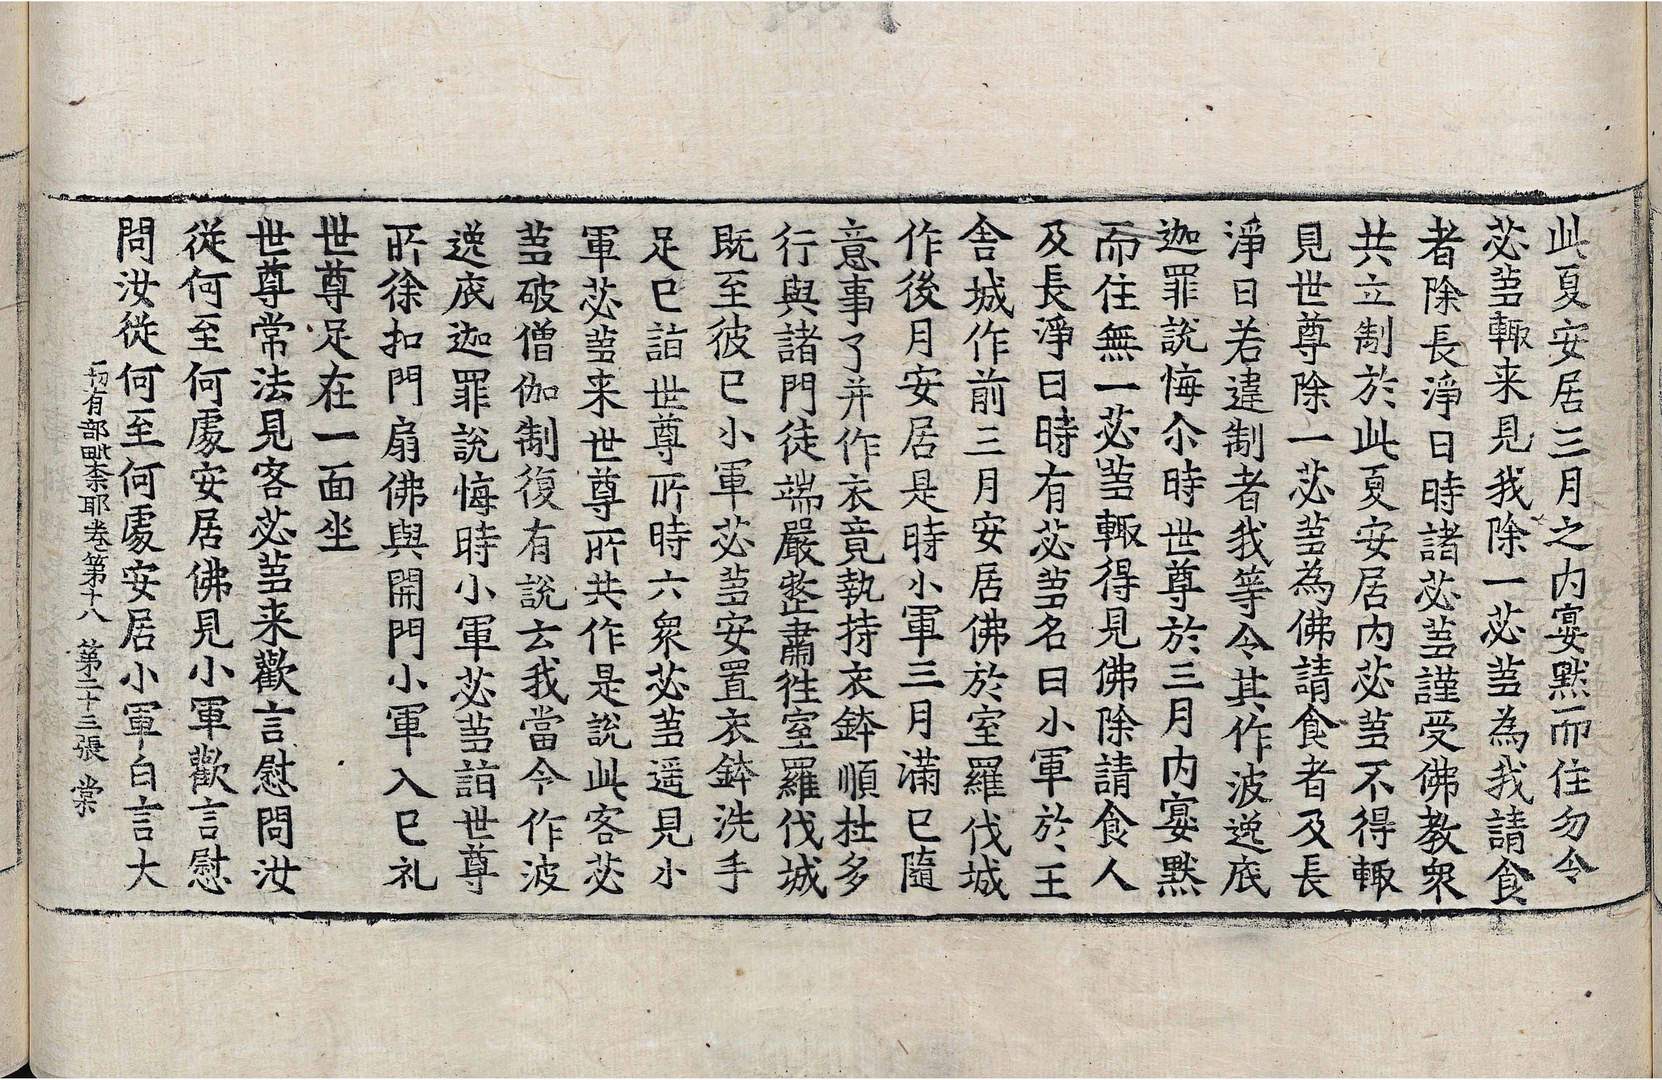 此夏安居三月之內宴默而住勿令
苾蒭輙来見我除一苾蒭為我請食
者除長淨日時諸苾蒭謹受佛教衆
共立制於此夏安居內苾蒭不得輙
見世尊除一苾蒭為佛請食者及長
淨日若違制者我等令其作波逸底
迦罪說悔尒時世尊於三月內宴黙
而住無一苾蒭輙得見佛除請食人
及長淨日時有苾蒭名曰小軍於王
舍城作前三月安居佛於室羅伐城
作後月安居是時小軍三月滿已隨
意事了并作衣竟執持衣鉢順拄多
行與諸門徒端嚴整肅徃室羅伐城
既至彼已小軍苾蒭安置衣鉢洗手
足已詣世尊所時六衆苾蒭遥見小
軍苾蒭来世尊所共作是說此客苾
蒭破僧伽制復有說言我當令作波
逸底迦罪說悔時小軍苾蒭詣世尊
所徐扣門扇佛與開門小軍入已礼
世尊足在一面坐
世尊常法見客苾蒭来歡言慰問汝
從何至何處安居佛見小軍歡言慰
問汝從何至何處安居小軍白言大
一切有部毗柰耶卷第十八 第二十三張 棠